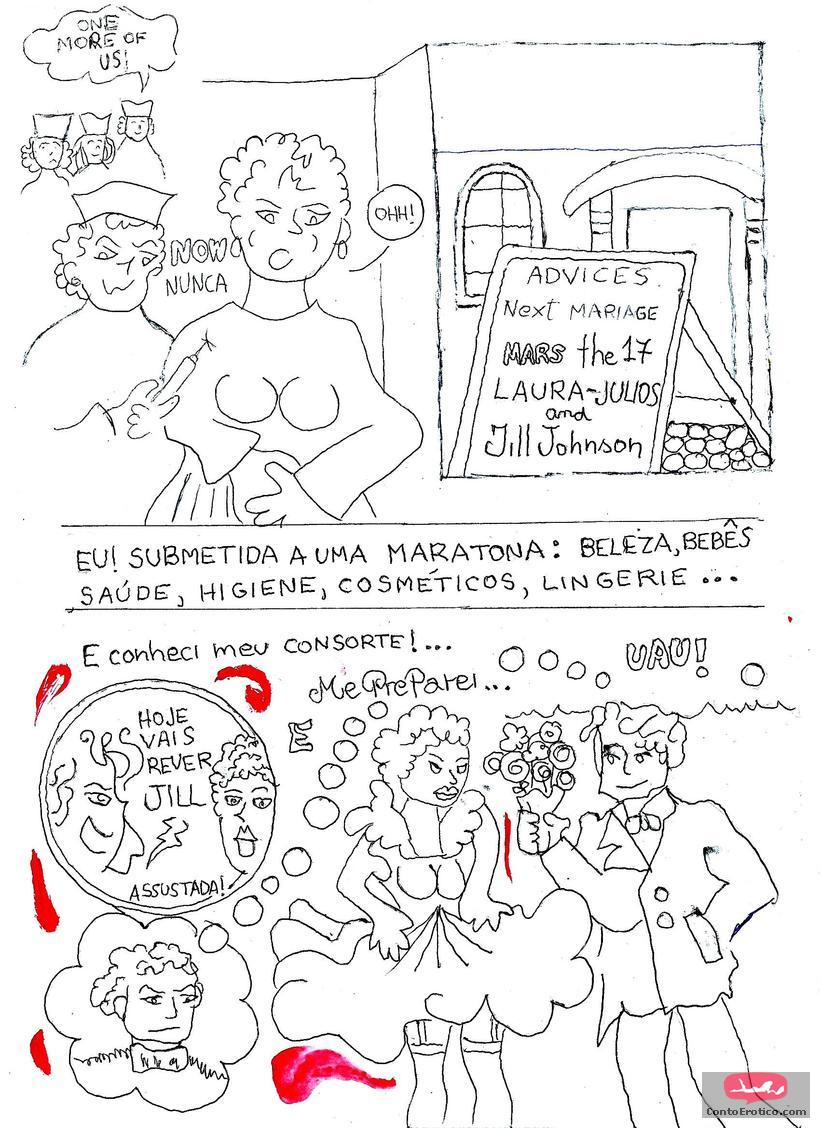 ONE
MORE OF
US!
OHH!
NOW
NUNCA
ADVICES
Next MARIAGE
MARS the 17
LAURA-JULIOS
and
Jill Johnson
EU! SUBMETIDA A UMA MARATONA: BELEZA, BEBÊS
SAÚDE, HIGIENE, COSMÉTICOS, LINGERIE ...
E conheci meu CONSORTE!...
UAU!
Me PrePareI...
E
HOJE
VAIS
REVER
JILL
ASSUSTADA!
ContoErotico.com